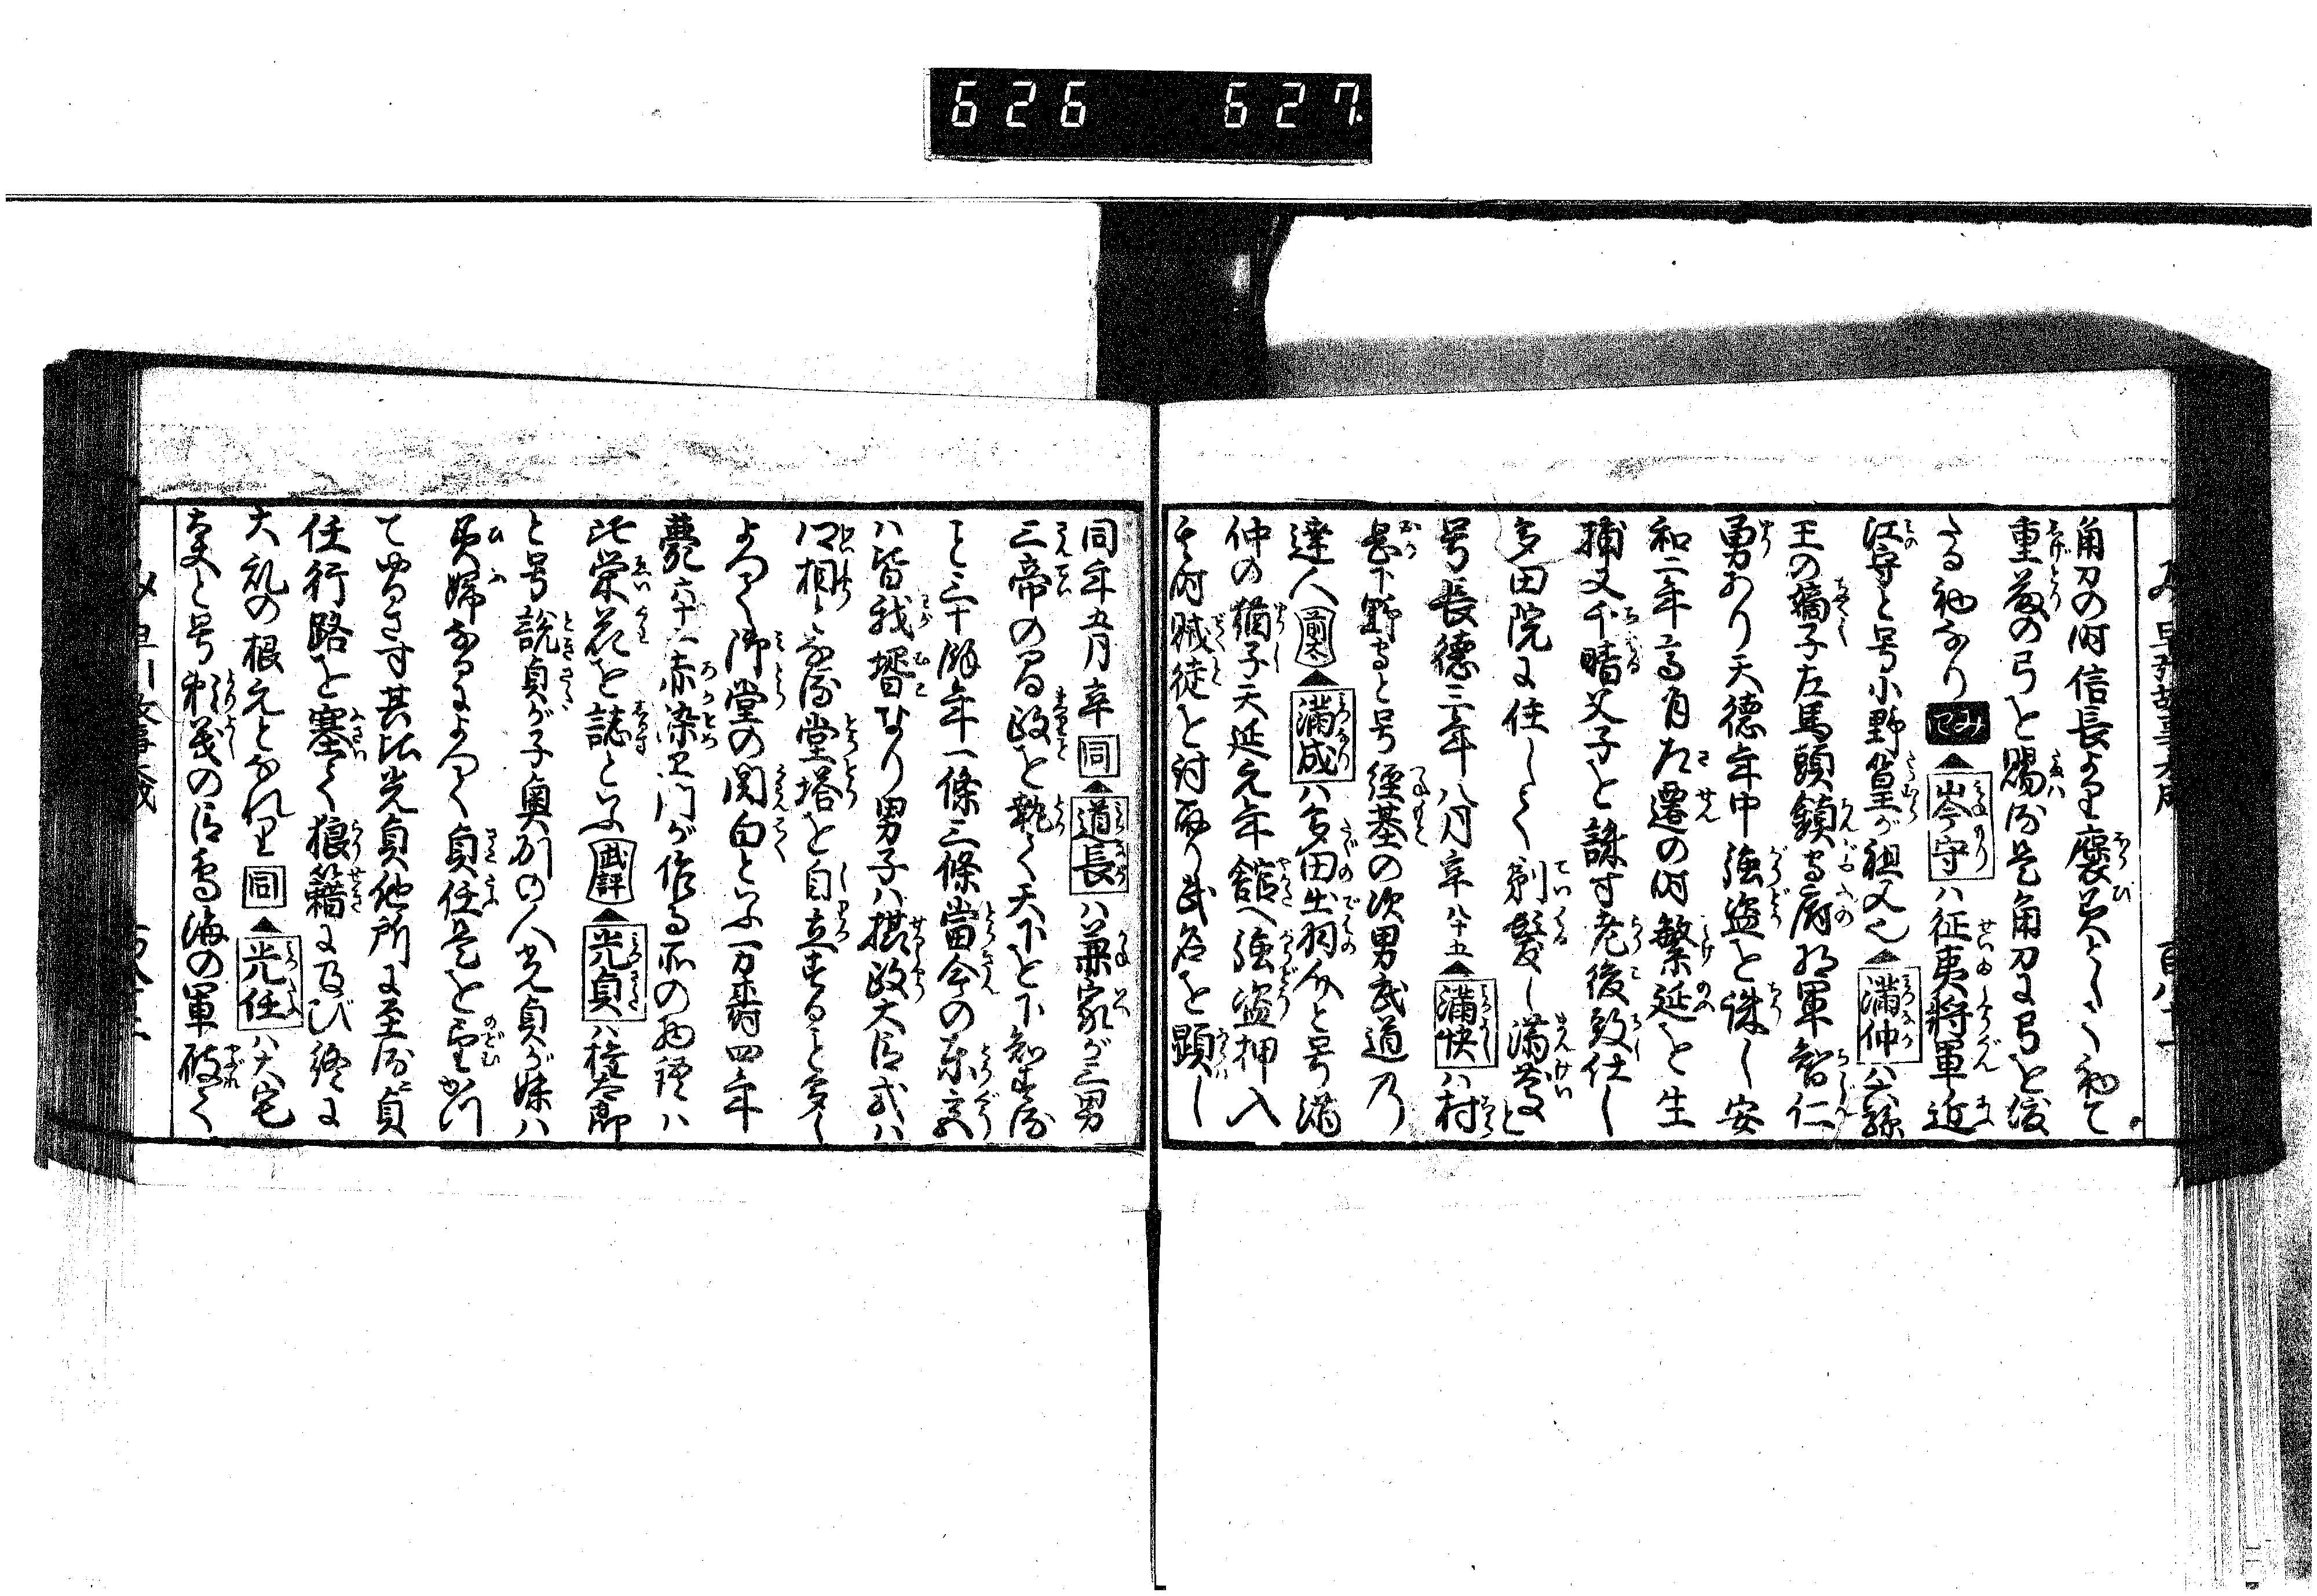 626 627
角力の時信長より褒美として初て
重藤の弓を賜る是角力に弓を渡
する初なり ミツ ▲岑守ハ征夷将軍近
江守と号小野篁が祖父也▲満仲ハ六孫
王の嫡子左馬頭鎮守府将軍智仁
勇あり天徳年中強盗を誅し安
和二年高明左遷の時繁延を生
捕又千晴父子を誅す老後致仕し
多田院に住して剃髪し満慶と
号長徳三年八月卒八十五▲満快ハ村
岳下野守と号経基の次男武道乃
達人 ▲満成ハ多田出羽介と号満
仲の猶子天延元年舘へ強盗押入
其時賊徒を討取り武名を顕し
同年五月卒 同 ▲道長ハ兼家が三男
三帝の間政を執て天下を下知する
こと三十余年一條三條當今の東宮
ハ皆我壻なり男子ハ摂政大臣或ハ
公相となる堂塔を自立することを多し
よつて御堂の関白といふ万寿四年
薨六十二赤染衛門が作る所の物語ハ
此栄花を誌といふ 武評 ▲光貞ハ権太郎
と号説貞が子奥州の人光貞が妹ハ
美婦なるによつて貞任是を望めども
てゆるさず其比光貞他所に至る貞
任行路を塞て狼籍に及び終に
大乱の根元となれり 同 ▲光任ハ大宅
太夫と号頼義の臣鳥海の軍破て